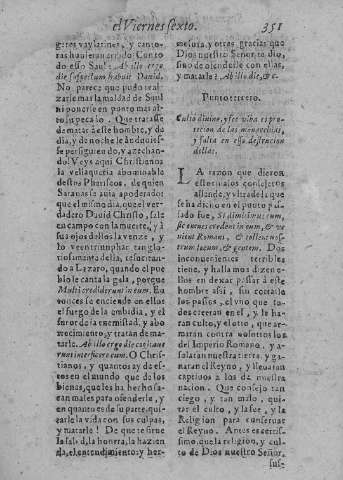 el Viernes sexto. 351
getes vayslarines, y canto-
ras hauieran arrodo Con to
do esso Saul: Ab illo ergo
die suspectum habuit Dauid.
No parece que pudo real
zarle mas la maldad de Saul
ni ponerle en punto mas al-
to su pecado. Que tratasse
de matar à este hombre, y de
dia, y de noche le anduuies-
se persiguiendo, y azechan-
do! Veys aqui Christianos
la vellaqueria abominable
destos Phariseos, de quien
Satanas se auia apoderado
que el mismo dia, que el ver-
dadero Dauid Christo, sale
en campo con la muerte, y à
sus ojos dellos la venze, y
lo veen triumphar tan glo-
riosamente della, resucitan-
do a Lazaro, quando el pue
blo le canta la gala, porque
Multi crediderunt in eum. En
tonces se enciende en ellos
el fuego de la embidia, y el
furor de la enemistad, y abo
rrecimiento, y tratan de ma-
tarle. Ab illo ergo die cogitaue
runt interficere eum. O Chris-
tianos, y quantos ay de es-
tos en el mundo que de los
bienes, que les ha hecho sa-
can males para ofenderle, y
en quanto es de su parte, qui-
zarle la vida con sus culpas,
y matarle! De que te sirue
la salud, la honrra, la hazien
da, el entendimiento, y her-
mesura, y otras gracias que
Dios nuestro Señor te dio,
sino de ofenderle con ellas,
y matarle? Ab illo die, & c.
Punto tercero.
Culto diuino, y fee viba es pro-
teccion de las monarchias,
y falta en esso destruccion
dellas.
LA razon que dieron
estos malos consejeros
allende, y vltra de la que
se ha dicho en el punto pa-
sado fue, Si dimisimus eum,
sic omnes credent in eum, & ve
nient Romani, & tollent nos-
trum locum, & gentem. Dos
inconuenientes terribles
tiene, y hallamos dizen e-
llos en dexar passar à este
hombre assi, sin cortarle
los passos, el vno que to-
dos creeran en el, y le ha-
ran culto, y el otro, que ar-
maran contra nosotros los
del Imperio Romano, y a-
salaran nuestra tierra, y ga-
naran el Reyno, y lleuaran
captiuos à los de nuestra
nacion. Que consejo tan
ciego, y tan malo, qui-
tar el culto, y la fee, y la
Religion para conseruar
el Reyno. Antes es certis-
simo, que la religion, y cul-
to de Dios nuestro Señor,
sus-